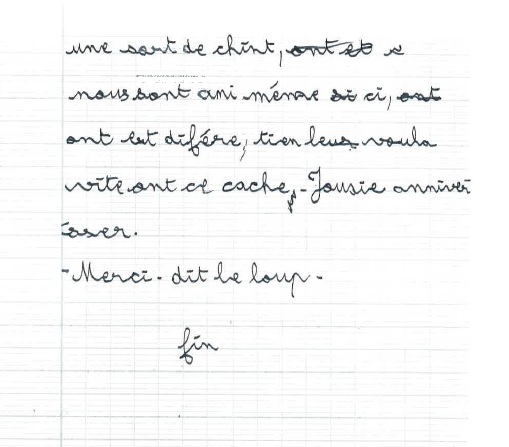 une sort de chint, ont et e
nous sont ami même si ci, ont
ont est difére, tien leus voula
vite ont ce cache, - Jousie anniver
saser.
- Merci - dit le loup -
fin